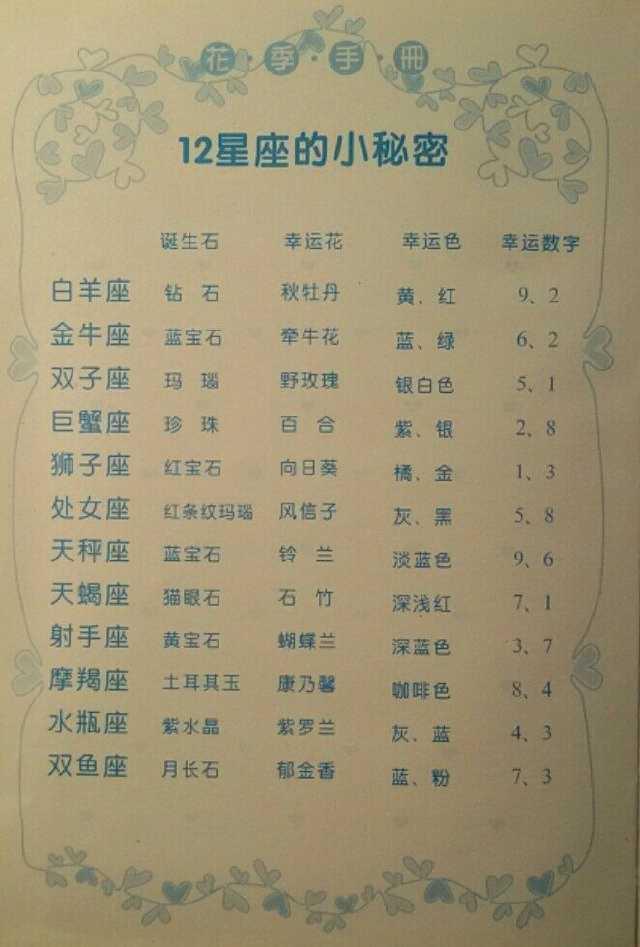 花·季·手·册
12星座的小秘密
诞生石 幸运花 幸运色 幸运数字
白羊座 钻石 秋牡丹 黄、红 9、2
金牛座 蓝宝石 牵牛花 蓝、绿 6、2
双子座 玛瑙 野玫瑰 银白色 5、1
巨蟹座 珍珠 百合 紫、银 2、8
狮子座 红宝石 向日葵 橘、金 1、3
处女座 红条纹玛瑙 风信子 灰、黑 5、8
天秤座 蓝宝石 铃兰 淡蓝色 9、6
天蝎座 猫眼石 石竹 深浅红 7、1
射手座 黄宝石 蝴蝶兰 深蓝色 3、7
摩羯座 土耳其玉 康乃馨 咖啡色 8、4
水瓶座 紫水晶 紫罗兰 灰、蓝 4、3
双鱼座 月长石 郁金香 蓝、粉 7、3